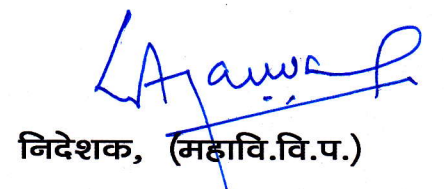 निदेशक, (महावि.वि.प.)